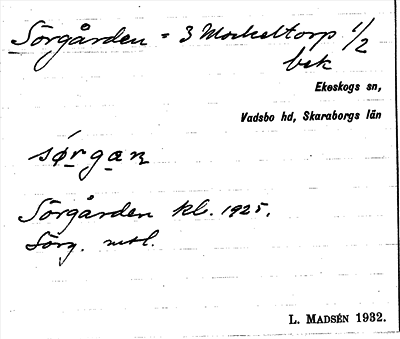 Sörgården = 3 Mockeltorp 1/2
bsk
Ekeskogs sn,
Vadsbo hd, Skaraborgs län
sørgan
Sörgården kl. 1925.
Sörg. mtl.
L. MADSÉN 1932.